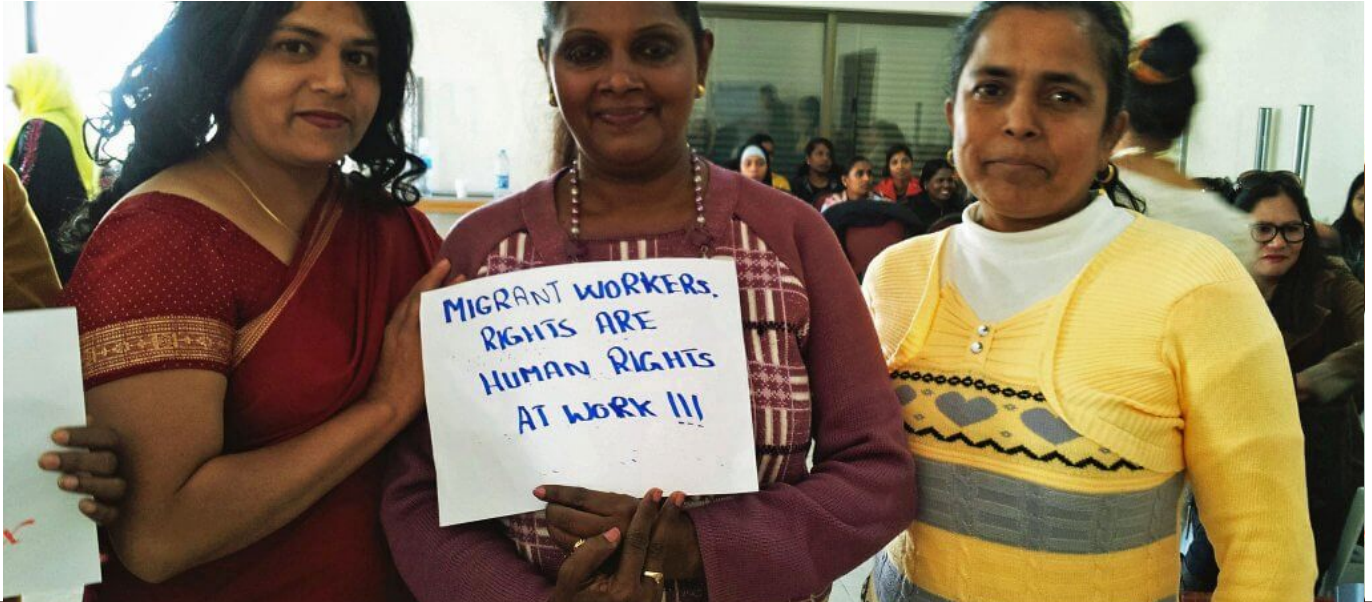 MIGRANT WORKERS.
RIGHTS ARE
HUMAN RIGHTS
AT WORK !!!